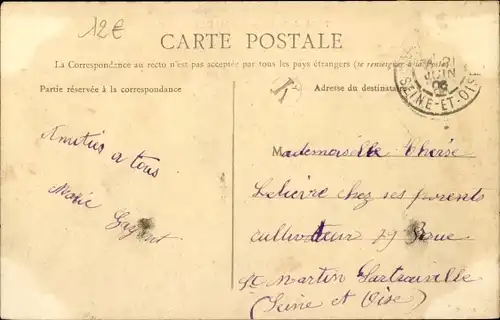 12€
CARTE POSTALE
La Correspondance au recto n'est pas acceptée par tous les pays étrangers (se renseigner à la poste)
Partie réservée à la correspondance
Adresse du destinataire
K
21
JUIN
SEINE-ET-OISE
Amitiés a tous
Marie
Mademoiselle Therèse
Lelievre chez ses parents
cultivateur 79 Rue
St Martin Sartrouville
(Seine et Oise)